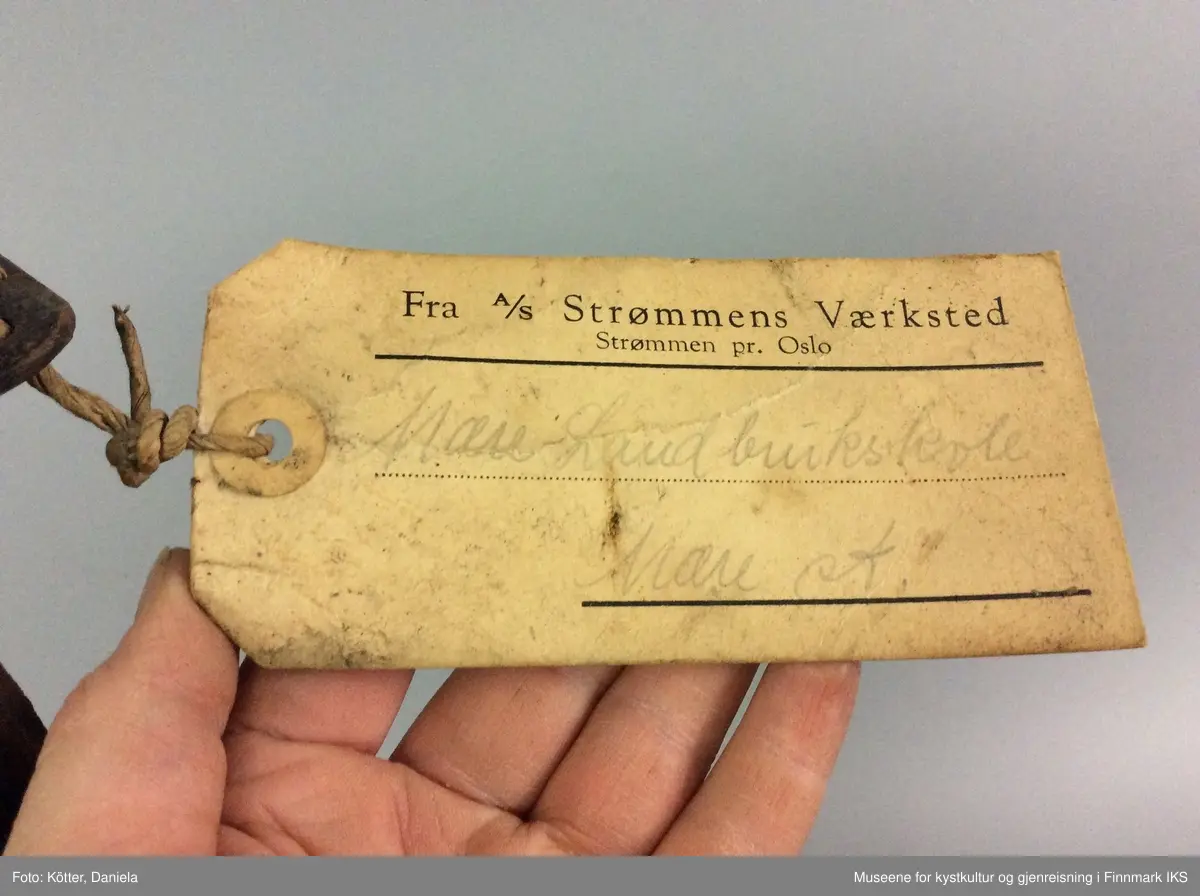 Fra A/s Strømmens Værksted
Strømmen pr. Oslo
Mære Landbruksskole
Mære st.
Foto: Kötter, Daniela
Museene for kystkultur og gjenreisning i Finnmark IKS